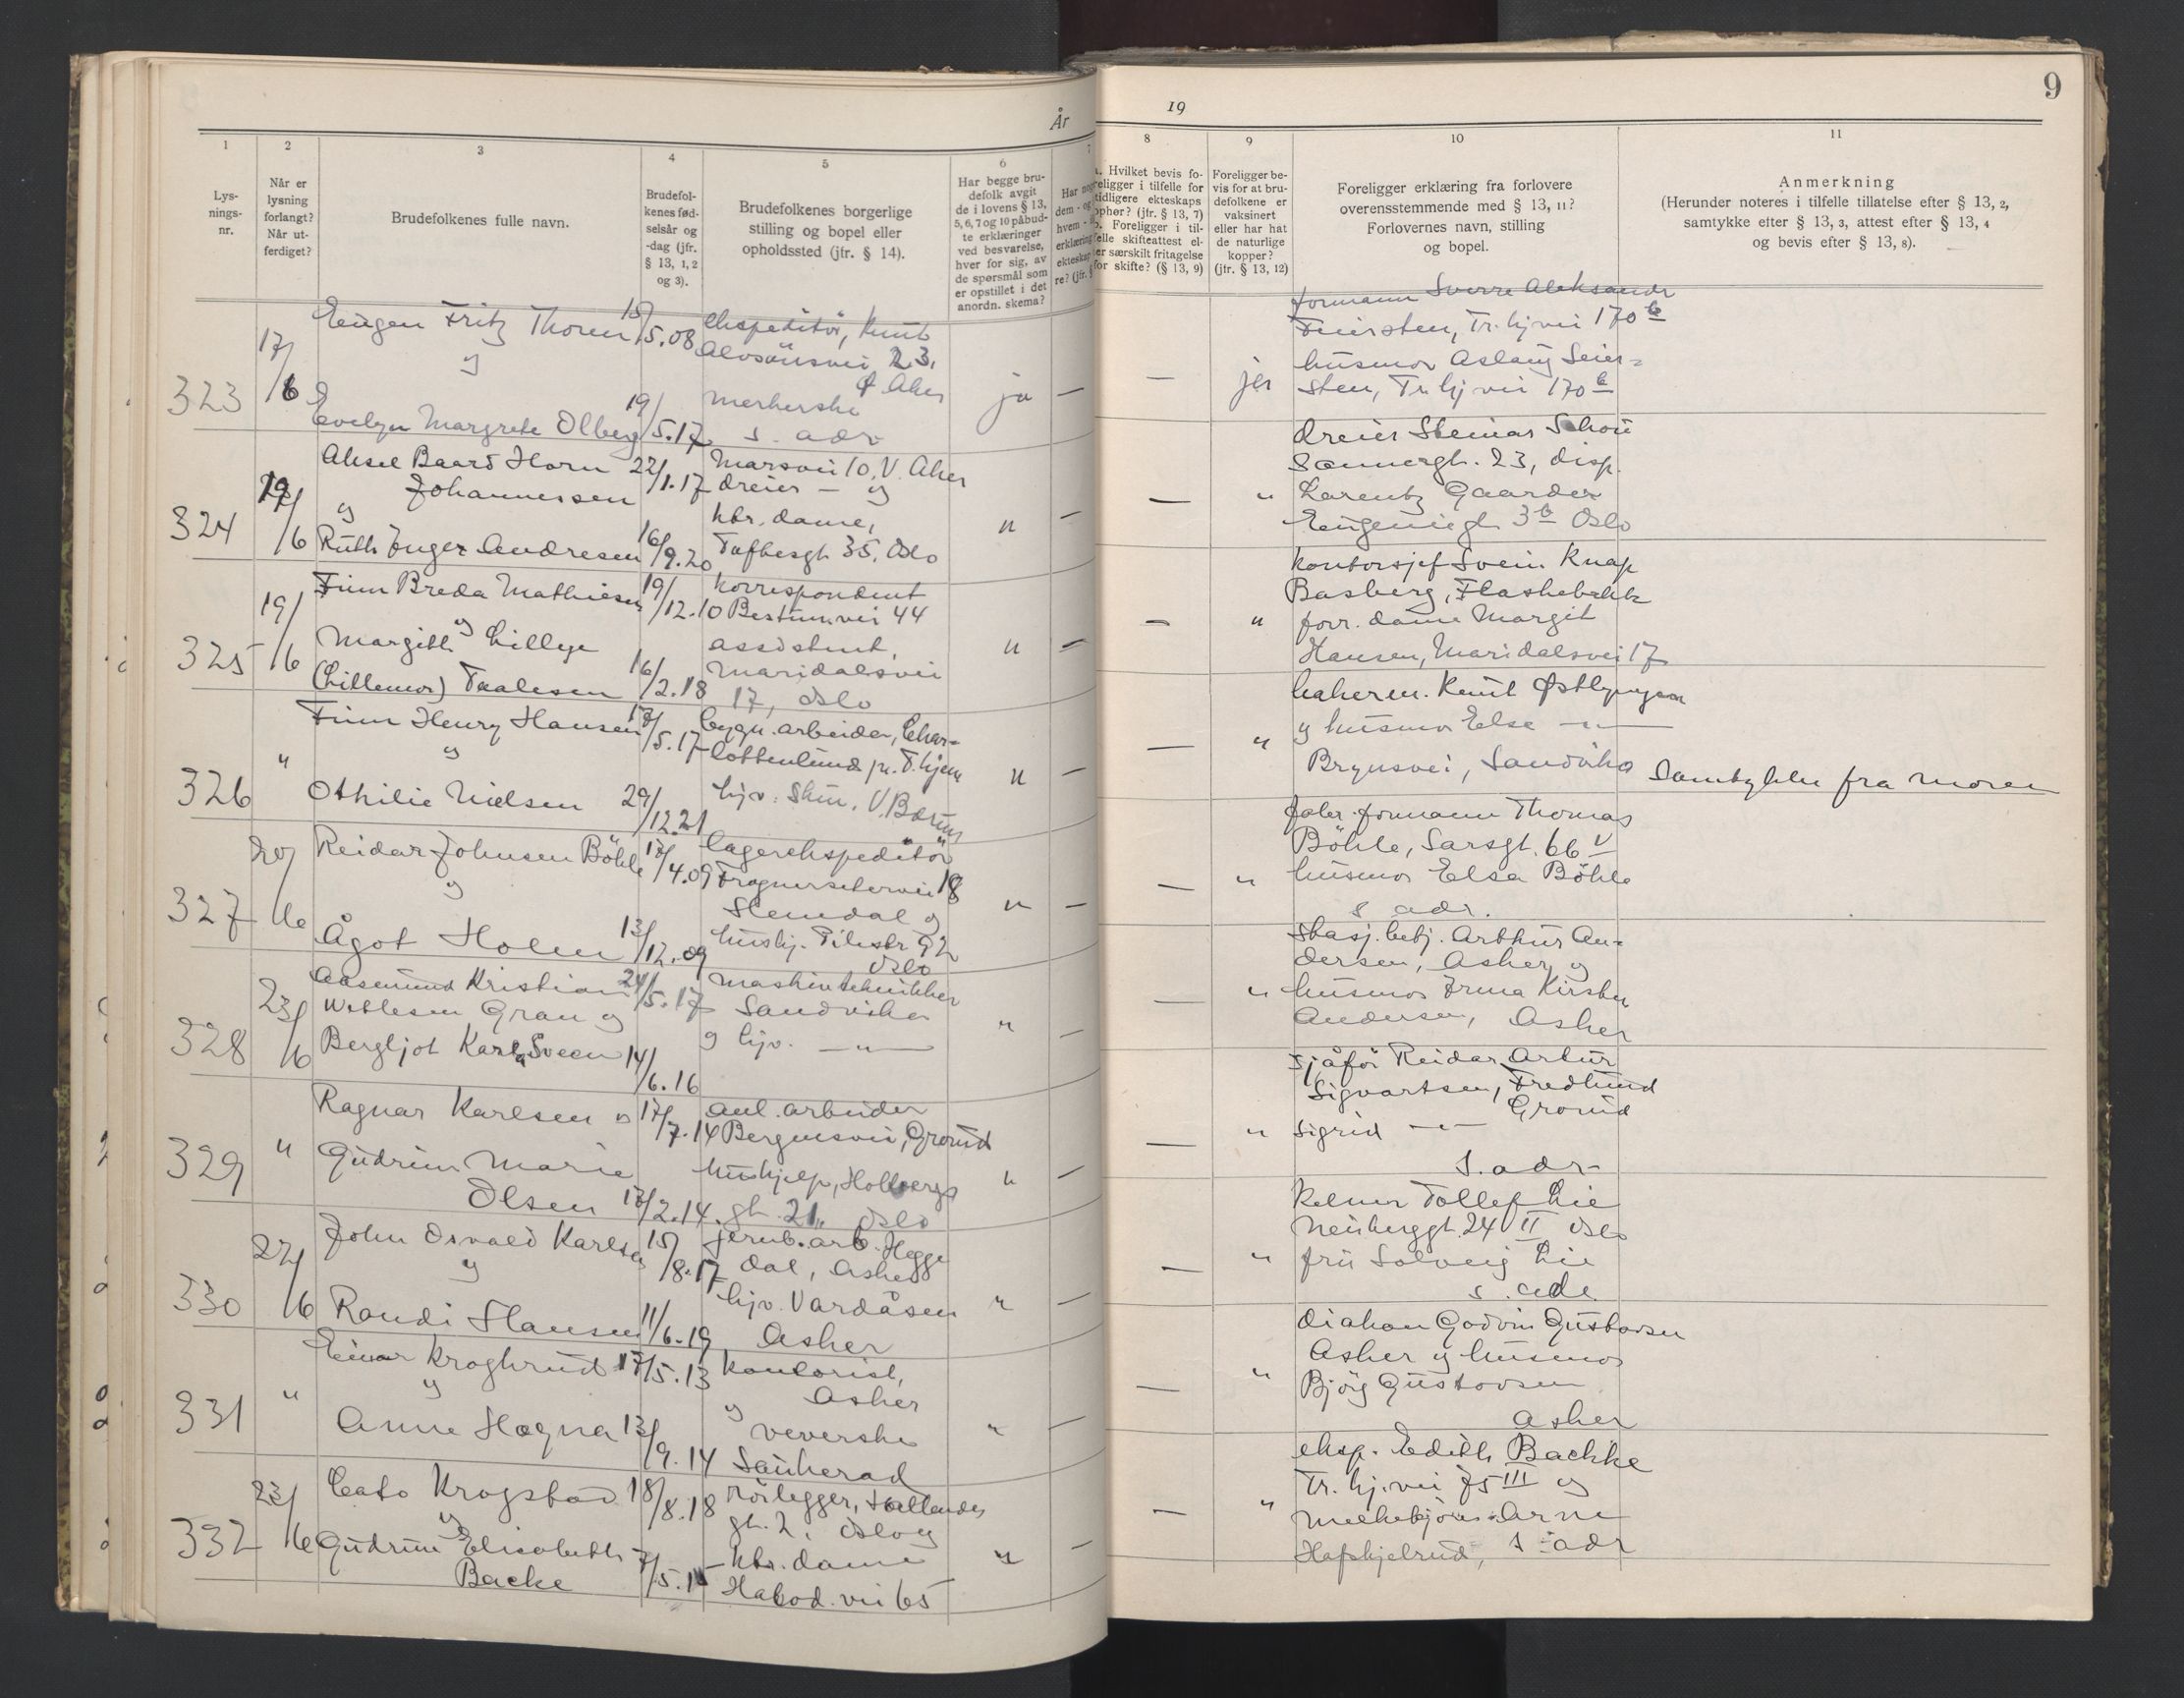 År
19
9
1
Lys-
nings-
nr.
2
Når er
lysning
forlangt?
Når ut-
ferdiget?
3
Brudefolkenes fulle navn.
4
Brudefol-
kenes fød-
selsår og
-dag (jfr.
§ 13, 1, 2
og 3).
5
Brudefolkenes borgerlige
stilling og bopel eller
opholdssted (jfr. § 14).
6
Har begge bru-
defolk avgit
de i lovens § 13,
5, 6, 7 og 10 påbud-
te erklæringer
ved besvarelse,
hver for sig, av
de spørsmål som
er opstillet i det
anordn. skema?
7
8
Hvilket bevis fo-
religger i tilfelle for
tidligere ekteskaps
ophør? (jfr. § 13, 7)
b. Foreligger i til-
felle skifteattest el-
ler særskilt fritagelse
for skifte? (§ 13, 9)
9
Foreligger be-
vis for at bru-
defolkene er
vaksinert
eller har hat
de naturlige
kopper?
(jfr. § 13, 12)
10
Foreligger erklæring fra forlovere
overensstemmende med § 13, 11?
Forlovernes navn, stilling
og bopel.
11
Anmerkning
(Herunder noteres i tilfelle tillatelse efter § 13, 2,
samtykke efter § 13, 3, attest efter § 13, 4
og bevis efter § 13, 8).
323
17/6
Eugen Fritz Thoren 15/5.08
og
Evelyn Margrete Olberg 19/5.17
ekspeditør, Knut
Alvssønsvei 23.
Ø Aker
merkerske
s. adr
ja —
— ja
formann Sverre Aleksandr
Seiersten, Tr.hjvei 170 b
husmor Aslaug Seier-
sten, Tr hj vei 170 b
324
19/6
Aksel Baard Horn 22/1.17
Johannessen
og
Ruth Inger Andresen 16/9.20
Marsvei 10, V. Aker
dreier — og
ktr. dame,
Toftesgt 35, Oslo
" —
— "
dreier Steinar Schou
Sannergt. 23, disp.
Larentz Gaarder
Eugeniegt 3 b Oslo
325
19/6
Finn Breda Mathiesen 19/12.10
og
Margith Lillye
(Lillemor) Taalesen 16/2.18
korrespondent
Bestumvei 44
assistent,
Maridalsvei
17, Oslo
" —
— "
kontorsjef Svein Knap
Basberg, Flaskebekk
forr. dame Margit
Hansen, Maridalsvei 17
326
"
Finn Henry Hansen 13/5.17
og
Othilie Nielsen 29/12.21
bygn. arbeider, Char-
lottenlund pr. T.hjem
hjv. Skui, V. Bærum
" —
— "
bakerm. Knut Østbyhagen
og husmor Else — " —
Brynsvei, Sandvika
Samtykke fra moren
327
20/6
Reidar Johnsen Böhle 13/4.09
og
Ågot Holen 13/12.09
lagerekspeditör
Frognerseterveien 18
Slemdal og
hushj. Pilestr 92
Oslo
" —
— "
faber. formann Thomas
Böhle, Sarsgt. 66 V
husmor Elsa Böhle
s adr.
328
23/6
Aasmund Kristian 24/5.17
Wetlesen Gran og
Bergljot Karla Sveen 14/6.16
maskintekniker
Sandvika
og hjv. — " —
" —
— "
stasj. betj. Arthur An-
dersen, Asker og
husmor Irma Kirsten
Andersen, Asker
329
"
Ragnar Karlsen og 17/7.14
Gudrun Marie
Olsen 13/2.14
anl. arbeider
Bergensvei, Grorud
hushjelp, Holbergs
gt. 21, Oslo
" —
— "
sjåför Reidar Artur
Sigvartsen, Fredlund
Grorud
Sigrid — " —
s. adr.
330
22/6
John Osvald Karlsen 15/8.17
og
Randi Hansen 11/6.19
jernb. arb. Hegge
dal, Asker
hjv. Vardåsen
Asker
" —
— "
kelner Tollef Lie
Neuberggt. 24 II Oslo
fru Solveig Lie
s. adr.
331
"
Einar Kroghrud 17/5.13
og
Anne Høgna 13/9.14
kontorist,
Asker
og
veverske
Sauherad
" —
— "
diakon Godvin Gustavsen
Asker og husmor
Bjørg Gustavsen
Asker
332
23/6
Cato Krogstad 18/8.18
og
Gudrun Elisabeth 7/5.15
Backe
rörlegger,
gt. 2, Oslo og
— ktr. dame
Habod. vei 65
" —
— "
eksp. Edith Bachke
Tr. hj. vei 75 III og
Arne
s adr